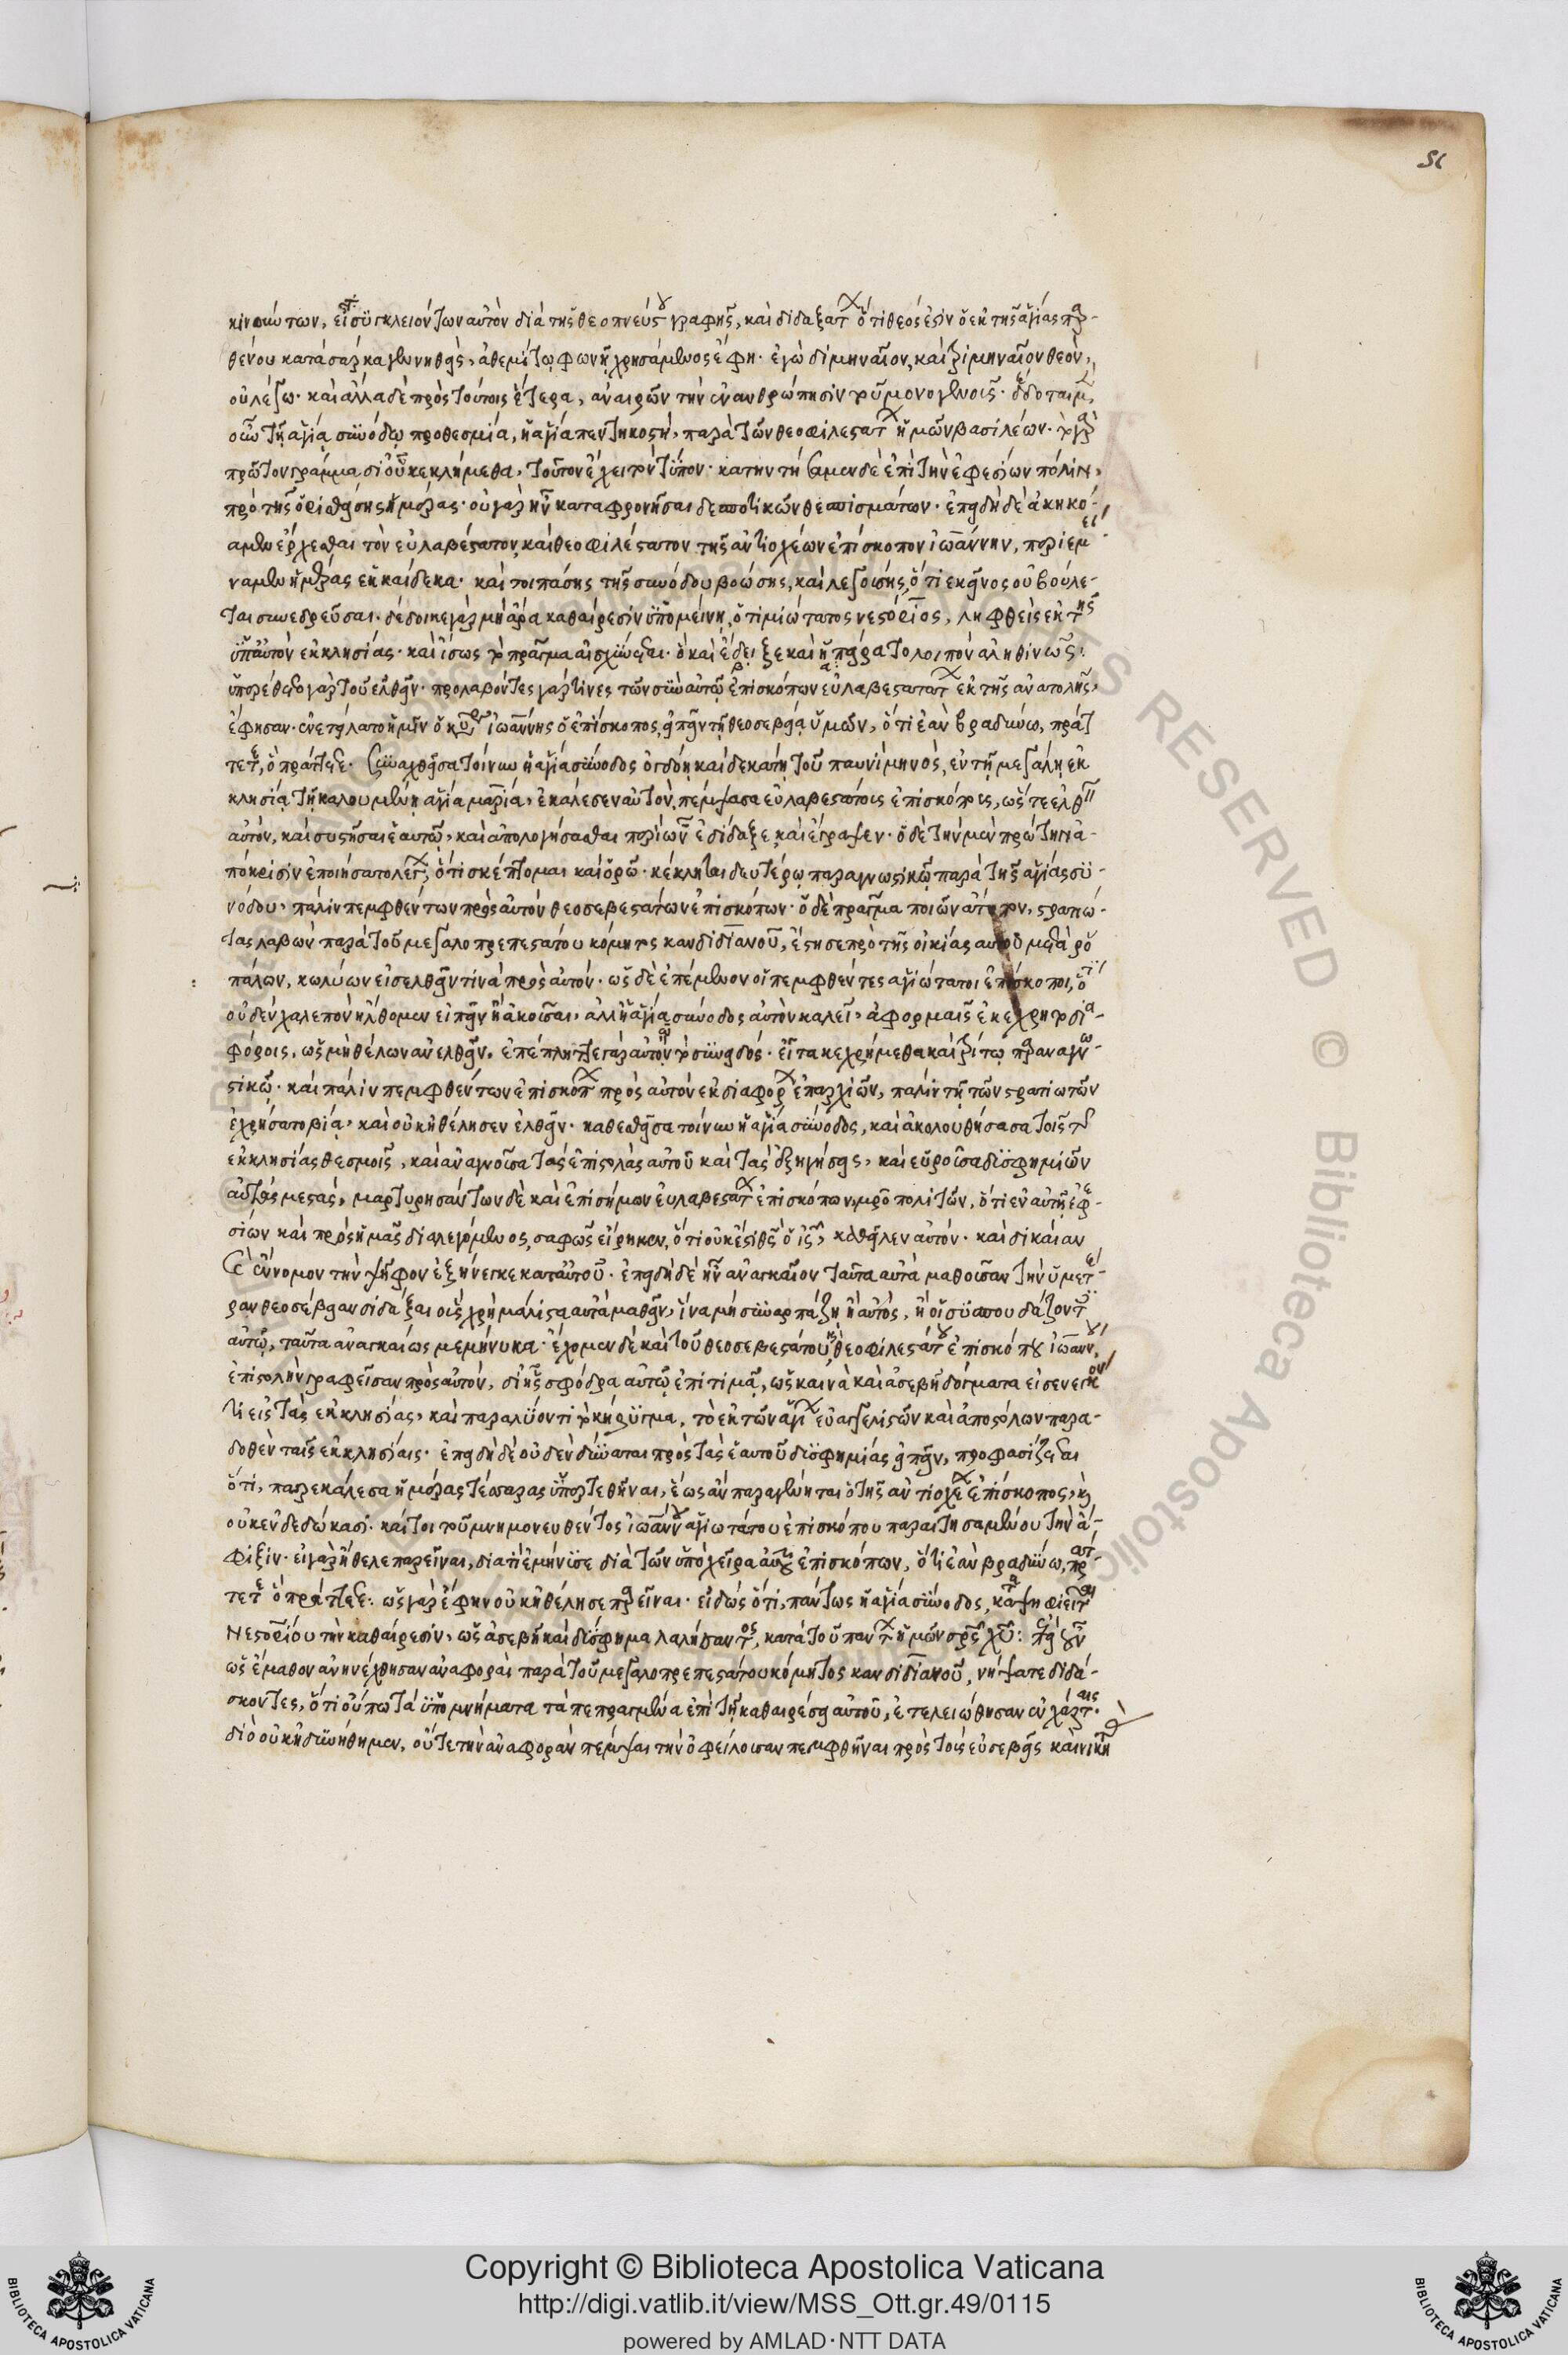 56
κινούντων, εἶτα συγκλειόντων αὐτὸν διὰ τῆς θεοπνεύστου γραφῆς, καὶ διδαξάντων ὅτι θεός ἐστιν ὁ ἐκ τῆς ἁγίας παρ-
θένου κατὰ σάρκα γεννηθείς, ἀθεμίτῳ φωνῇ χρησάμενος ἔφη· ἐγὼ διμηναῖον, καὶ τριμηναῖον θεὸν,
οὐ λέγω· καὶ ἄλλα δὲ πρὸς τούτοις ἕτερα, ἀναιρῶν τὴν ἐνανθρώπησιν τοῦ μονογενοῦς·
τῇ ἁγίᾳ συνόδῳ προθεσμία, ἡ ἁγία πεντηκοστή, παρὰ τῶν θεοφιλεστάτων ἡμῶν βασιλέων· τὸ γὰρ
πρῶτον γράμμα δι' οὗ κεκλήμεθα, τοῦτον ἔχει τὸν τύπον· κατηντήσαμεν δὲ ἐπὶ τὴν ἐφεσίων πόλιν,
πρὸ τῆς ὁρισθείσης ἡμέρας· οὐ γὰρ ἦν καταφρονῆσαι δεσποτικῶν θεσπισμάτων· ἐπειδὴ δὲ ἀκηκό-
αμεν ἔρχεσθαι τὸν εὐλαβέστατον, καὶ θεοφιλέστατον τῆς ἀντιοχέων ἐπίσκοπον ἰωάννην, περιεμεί-
ναμεν ἡμέρας ἑκκαίδεκα· καί τοι πάσης τῆς συνόδου βοώσης, καὶ λεγούσης, ὅτι ἐκεῖνος οὐ βούλε-
ται συνεδρεῦσαι· δέδοικε γὰρ μὴ ἄρα καθαίρεσιν ὑπομείνῃ, ὁ τιμιώτατος νεστόριος, ληφθεὶς ἐκ τῆς
ὑπ' αὐτὸν ἐκκλησίας· καὶ ἴσως τὸ πρᾶγμα αἰσχύνεται· ὃ καὶ ἔδειξε καὶ ἡ πεῖρα τὸ λοιπὸν ἀληθινῶς·
ὑπερέθετο γὰρ τοῦ ἐλθεῖν· προλαβόντες γάρ τινες τῶν σὺν αὐτῷ ἐπισκόπων εὐλαβεστάτων ἐκ τῆς ἀνατολῆς,
ἔφησαν· ἐνετείλατο ἡμῖν ὁ κύρις ἰωάννης ὁ ἐπίσκοπος, εἰπεῖν τῇ θεοσεβείᾳ ὑμῶν, ὅτι ἐὰν βραδύνω, πράτ-
τετε, ὃ πράττετε· Συναχθεῖσα τοίνυν ἡ ἁγία σύνοδος ὀγδόῃ καὶ δεκάτῃ τοῦ παυνὶ μηνὸς, ἐν τῇ μεγάλῃ ἐκ
κλησίᾳ τῇ καλουμένῃ ἁγίᾳ μαρίᾳ, ἐκάλεσεν αὐτὸν, πέμψασα εὐλαβεστάτοις ἐπισκόποις, ὥστε ἐλθεῖν
αὐτὸν, καὶ συστῆσαι ἑαυτῷ, καὶ ἀπολογήσασθαι περὶ ὧν ἐδίδαξε, καὶ ἔγραψεν· ὁ δὲ τὴν μὲν πρώτην ἀ-
πόκρισιν ἐποιήσατο λέγων, ὅτι σκέπτομαι καὶ ὁρῶ· κέκληται δευτέρῳ παραγνωστικῷ παρὰ τῆς ἁγίας συ-
νόδου, πάλιν πεμφθέντων πρὸς αὐτὸν θεοσεβεστάτων ἐπισκόπων· ὁ δὲ πρᾶγμα ποιῶν ἄτοπον, στρατιώ-
τας λαβὼν παρὰ τοῦ μεγαλοπρεπεστάτου κόμητος κανδιδιανοῦ, ἔστησε πρὸ τῆς οἰκίας αὐτοῦ μετὰ ῥο
πάλων, κωλύων εἰσελθεῖν τινὰ πρὸς αὐτόν· ὡς δὲ ἐπέμενον οἱ πεμφθέντες ἁγιώτατοι ἐπίσκοποι, ὅτι
οὐδὲν χαλεπὸν ἤλθομεν εἰπεῖν ἢ ἀκοῦσαι, ἀλλ' ἡ ἁγία σύνοδος αὐτὸν καλεῖ, ἀφορμαῖς ἐκέχρητο δια-
φόροις, ὡς μὴ θέλων ἀνελθεῖν. ἐπέπληττε γὰρ αὐτὸν τὸ συνειδός· εἶτα κεχρήμεθα καὶ τρίτῳ παραναγνω-
στικῷ· καὶ πάλιν πεμφθέντων ἐπισκόπων πρὸς αὐτὸν ἐκ διαφόρων ἐπαρχιῶν, πάλιν τῇ τῶν στρατιωτῶν
ἐχρήσατο βίᾳ, καὶ οὐκ ἠθέλησεν ἐλθεῖν· καθεσθεῖσα τοίνυν ἡ ἁγία σύνοδος, καὶ ἀκολουθήσασα τοῖς τῆς
ἐκκλησίας θεσμοῖς, καὶ ἀναγνοῦσα τὰς ἐπιστολὰς αὐτοῦ καὶ τὰς ἐξηγήσεις, καὶ εὑροῦσα δυσφημιῶν
αὐτὰς μεστάς, μαρτυρησάντων δὲ καὶ ἐπισήμων εὐλαβεστάτων ἐπισκόπων, μητροπολιτῶν, ὅτι ἐν αὐτῇ τῇ ἐφε-
σίων καὶ πρὸς ἡμᾶς διαλεγόμενος, σαφῶς εἴρηκεν, ὅτι οὐκ ἔστι θεὸς ὁ ἰησοῦς, καθεῖλεν αὐτόν· καὶ δικαίαν
καὶ ἔννομον τὴν ψῆφον ἐξήνεγκε κατ' αὐτοῦ· ἐπειδὴ δὲ ἦν ἀναγκαῖον ταῦτα αὐτὰ μαθοῦσαν τὴν ὑμετέ-
ραν θεοσέβειαν διδάξαι οὓς χρὴ μάλιστα αὐτὰ μαθεῖν, ἵνα μὴ συναρπάζῃ ἢ αὐτός, ἢ οἱ συσπουδάζοντες
αὐτῷ, ταῦτα ἀναγκαίως μεμήνυκα· ἔχομεν δὲ καὶ τοῦ θεοσεβεστάτου, καὶ θεοφιλεστάτου ἐπισκόπου ἰωάννου,
ἐπιστολὴν γραφεῖσαν πρὸς αὐτόν, δι' ἧς σφόδρα αὐτῷ ἐπιτιμᾷ, ὡς καινὰ καὶ ἀσεβῆ δόγματα εἰσενεγκόν-
τι εἰς τὰς ἐκκλησίας, καὶ παραλύοντι τὸ κήρυγμα, τὸ ἐκ τῶν ἁγίων εὐαγγελιστῶν καὶ ἀποστόλων παρα-
δοθὲν ταῖς ἐκκλησίαις· ἐπειδὴ δὲ οὐδὲν δύναται πρὸς τὰς ἑαυτοῦ δυσφημίας εἰπεῖν, προφασίζεται
ὅτι, παρεκάλεσα ἡμέρας τέσσαρας ὑπερτεθῆναι, ἕως ἂν παραγένηται ὁ τῆς ἀντιοχέων ἐπίσκοπος, καὶ
οὐκ ἐνδεδώκασι· καίτοι τοῦ μνημονευθέντος ἰωάννου ἁγιωτάτου ἐπισκόπου παραιτησαμένου τὴν ἄ-
φιξιν· εἰ γὰρ ἤθελε παρεῖναι, διατί ἐμήνυσε διὰ τῶν ὑπὸ χεῖρα αὐτοῦ ἐπισκόπων, ὅτι ἐὰν βραδύνω, πράτ-
τετε ὃ πράττετε: ὡς γὰρ ἔφην οὐκ ἠθέλησε παρεῖναι· εἰδὼς ὅτι, πάντως ἡ ἁγία σύνοδος, καταψηφιεῖται
Νεστορίου τὴν καθαίρεσιν, ὡς ἀσεβῆ καὶ δύσφημα λαλήσαντος, κατὰ τοῦ πάντων ἡμῶν σωτῆρος χριστοῦ: ἐπεὶ οὖν
ὡς ἔμαθον ἀνηνέχθησαν ἀναφοραὶ παρὰ τοῦ μεγαλοπρεπεστάτου κόμητος κανδιδιανοῦ, νήψατε διδά-
σκοντες, ὅτι οὔπω τὰ ὑπομνήματα τὰ πεπραγμένα ἐπὶ τῇ καθαιρέσει αὐτοῦ, ἐτελειώθησαν ἐν χάρταις·
διὸ οὐκ ἠδυνήθημεν, οὔτε τὴν ἀναφορὰν πέμψαι τὴν ὀφείλουσαν πεμφθῆναι πρὸς τοὺς εὐσεβεῖς καὶ νικη
Copyright © Biblioteca Apostolica Vaticana
http://digi.vatlib.it/view/MSS_Ott.gr.49/0115
powered by AMLAD·NTT DATA
BIBLIOTECA APOSTOLICA VATICANA
BIBLIOTECA APOSTOLICA VATICANA